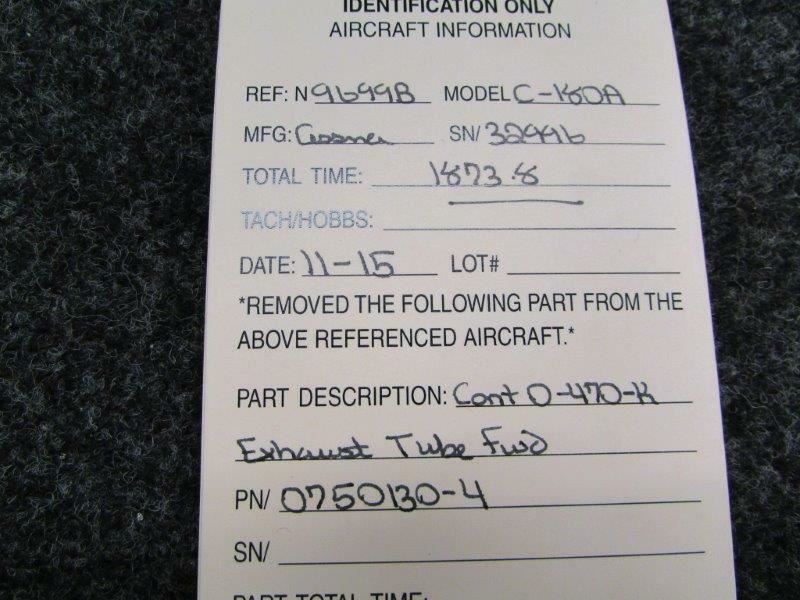 IDENTIFICATION ONLY
AIRCRAFT INFORMATION
REF: N 9699B MODEL C-180A
MFG: Cessna SN/ 32996
TOTAL TIME: 1873.8
TACH/HOBBS:
DATE: 11-15 LOT#
*REMOVED THE FOLLOWING PART FROM THE
ABOVE REFERENCED AIRCRAFT.*
PART DESCRIPTION: Cont O-470-K
Exhaust Tube Fwd
PN/ 0750130-4
SN/
PART TOTAL TIME: